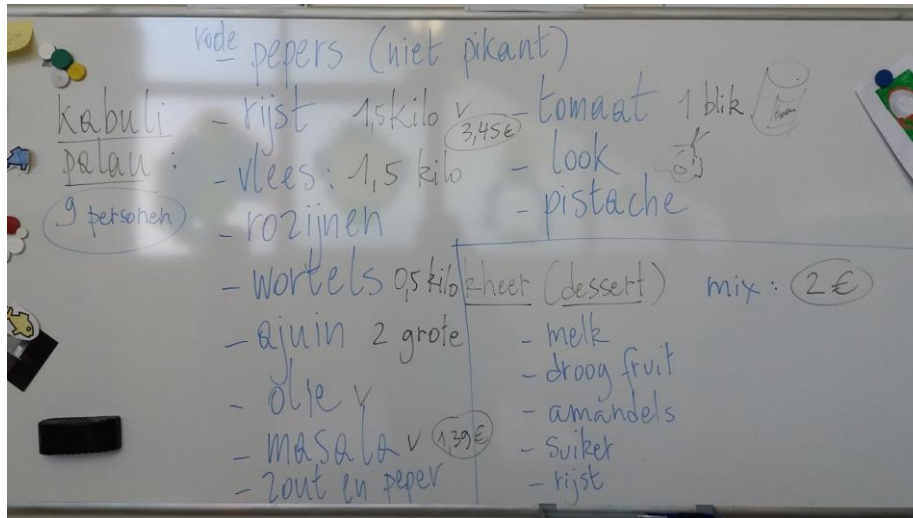 rode pepers (niet pikant)
kabuli
palau :
9 personen
- rijst 1,5 kilo v
3,45€
- vlees: 1,5 kilo
- rozijnen
- wortels 0,5 kilo
- ajuin 2 grote
- olie v
- masala v 1,39€
- zout en peper
- tomaat 1 blik
- look
- pistache
kheer (dessert) mix: 2€
- melk
- droog fruit
- amandels
- suiker
- rijst